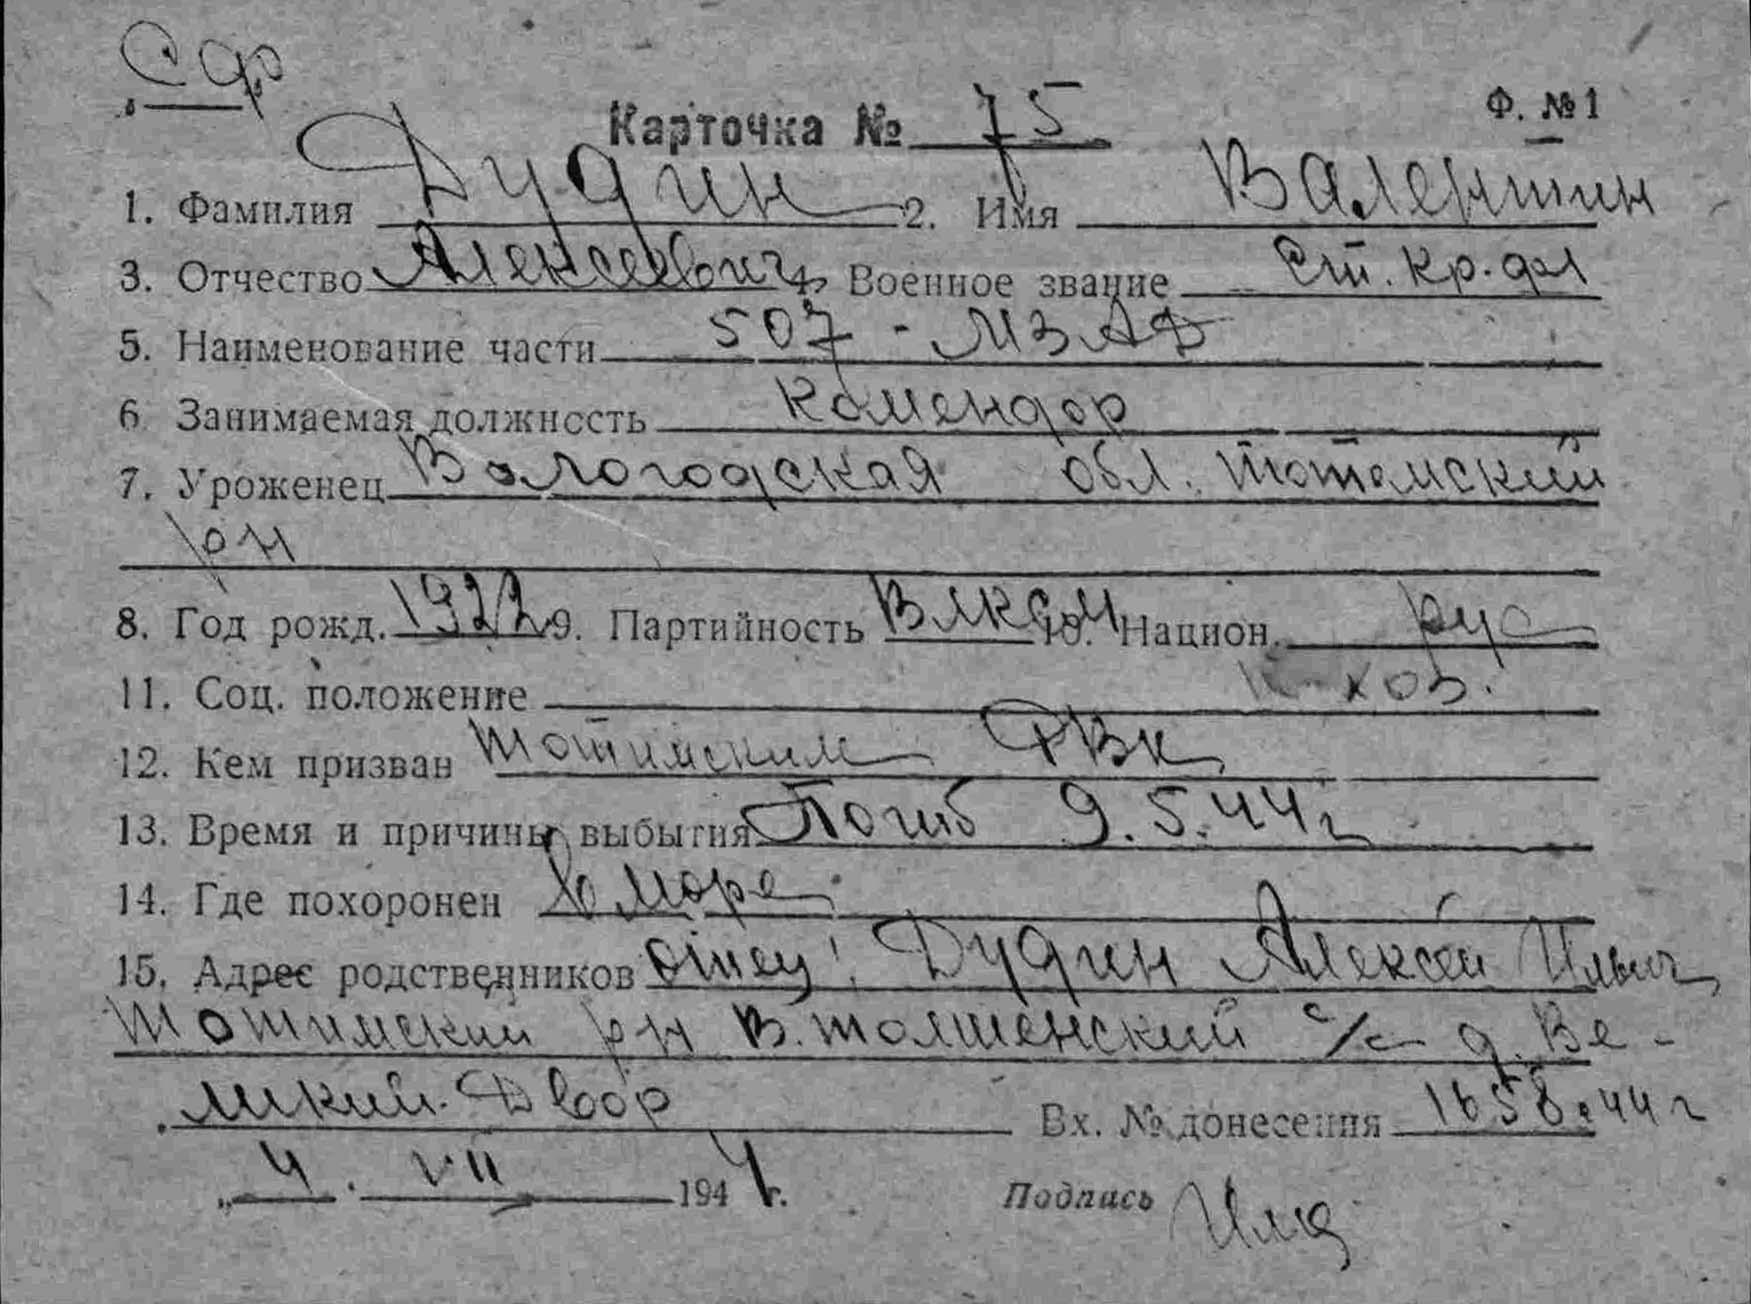 СФ
Карточка № 75 Ф. №1
1. Фамилия Дудин 2. Имя Валентин
3. Отчество Алексеевич 4. Военное звание Ст. кр-фл
5. Наименование части 507 - МЗАД
6 Занимаемая должность Комендор
7. Уроженец Вологодская обл. Тотемский
р-н
8. Год рожд. 1922 9. Партийность ВЛКСМ 10. Национ. рус
11. Соц. положение к-хоз.
12. Кем призван Тотимским РВК
13. Время и причины выбытия Погиб 9.5.44г
14. Где похоронен В море
15. Адрес родственников отец: Дудин Алексей Ильич
Тотимский р-н В.Толшменский с/с д. Ве-
ликий-Двор Вх. № донесения 1658.44г
„ 4 . VII 1944г. Подпись